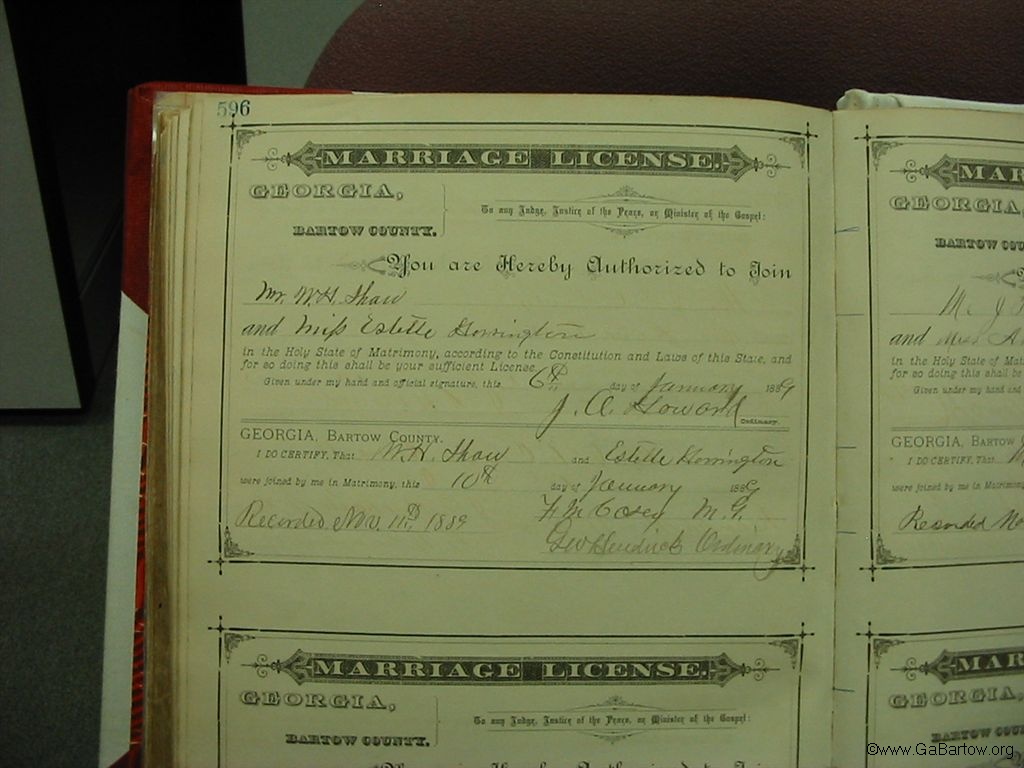 596
MARRIAGE LICENSE.
GEORGIA,
BARTOW COUNTY.
To any Judge, Justice of the Peace, or Minister of the Gospel:
You are Hereby Authorized to Join
Mr. W.H. Shaw
and Miss Estelle Dorrington
in the Holy State of Matrimony, according to the Constitution and Laws of this State, and
for so doing this shall be your sufficient License.
Given under my hand and official signature, this 6th day of January 1889
J. A. Howard Ordinary.
GEORGIA, BARTOW COUNTY.
I DO CERTIFY, That W.H. Shaw and Estelle Dorrington
were joined by me in Matrimony, this 10th day of January 1889
F. M. Casey M. G.
Recorded Nov. 11th 1889
Geo Hendrick Ordinary
MARRIAGE LICENSE.
GEORGIA,
BARTOW COUNTY.
To any Judge, Justice of the Peace, or Minister of the Gospel:
You are Hereby Authorized to Join
MAR
GEORGIA,
BARTOW COU
M. J
and Miss A
in the Holy State of Mat
for so doing this shall be
Given under my hand and
GEORGIA, BARTOW
I DO CERTIFY, That
were joined by me in Matrimony
Recorded No
MAR
GEORGIA,
BARTOW COU
©www.GaBartow.org